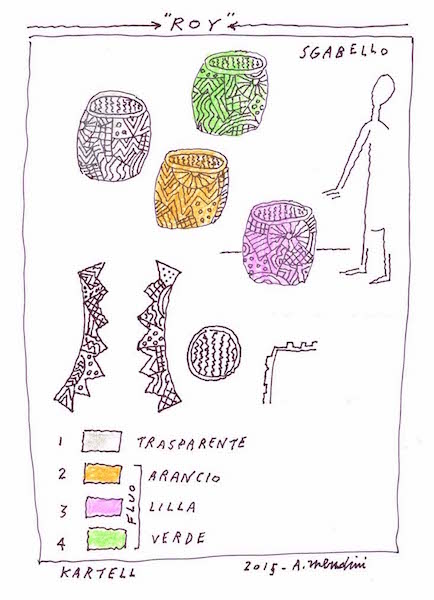 "ROY"
SGABELLO
1 TRASPARENTE
2 ARANCIO
3 LILLA
4 VERDE
FLUO
KARTELL 2015 - A. Mendini